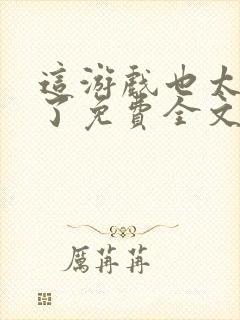 這游戲也太
了免費全文
厲苒苒